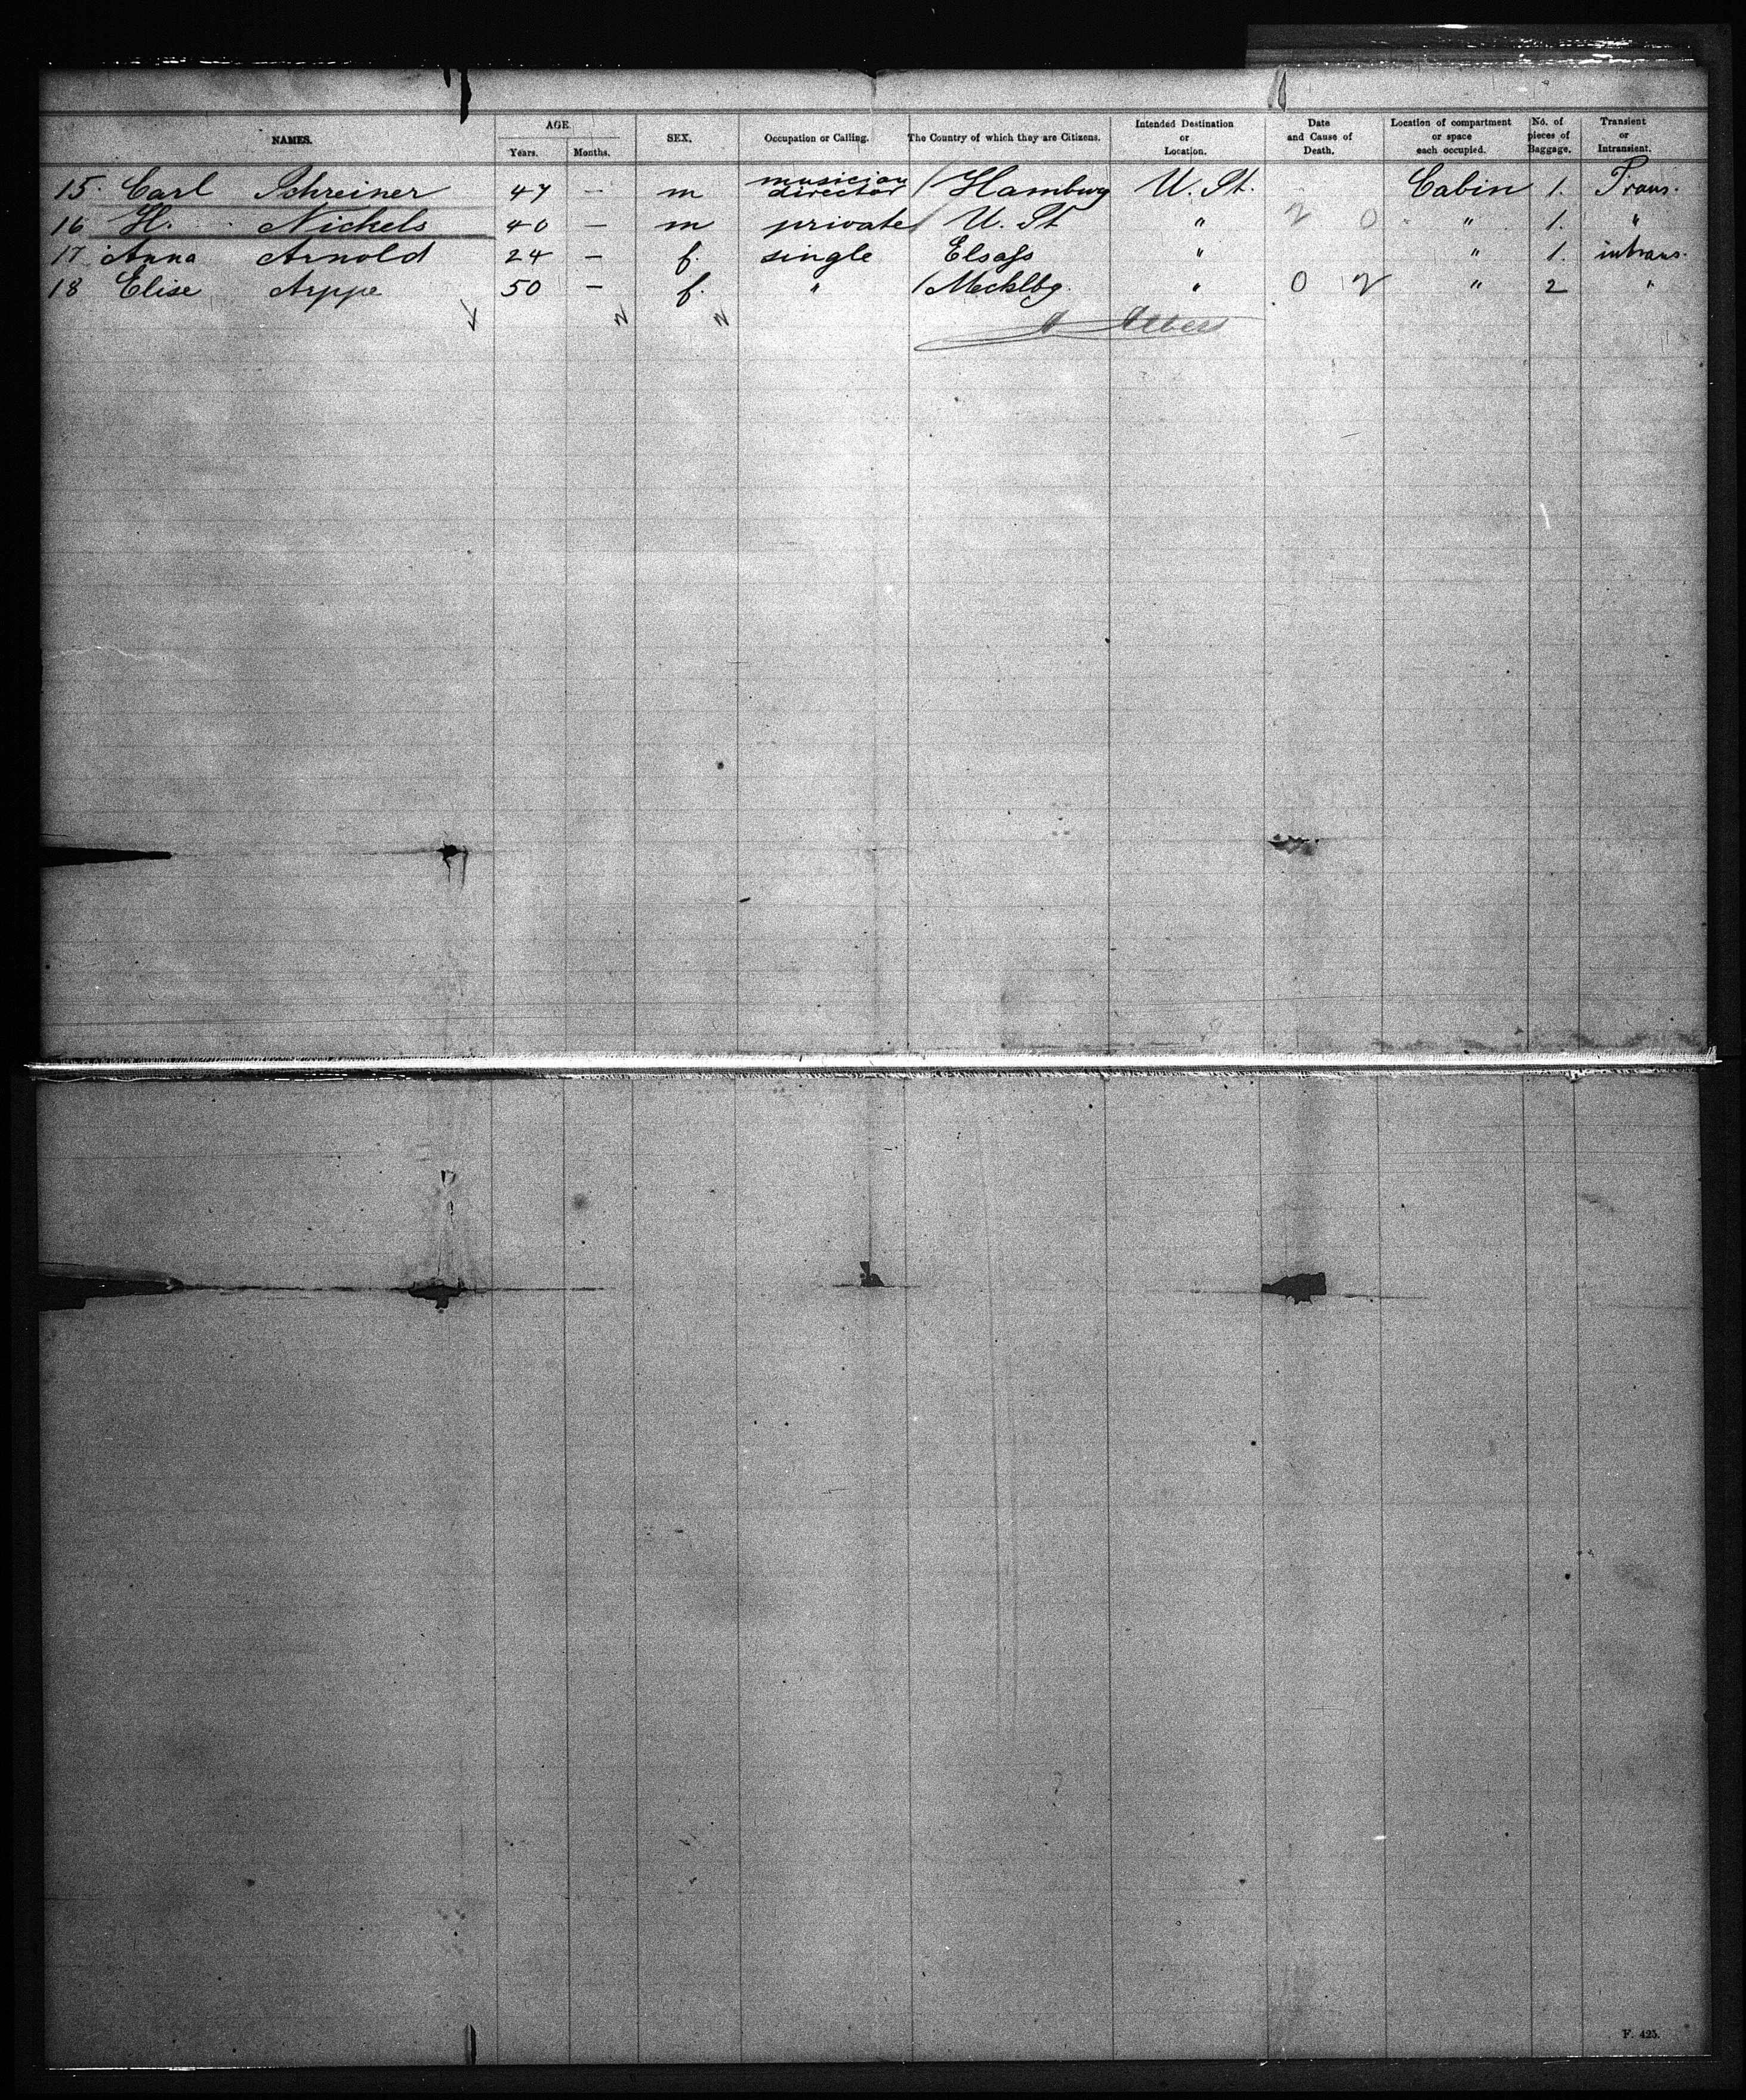 NAMES. AGE. SEX. Occupation or Calling. The Country of which they are Citizens. Intended Destination or Location. Date and Cause of Death. Location of compartment or space each occupied. No. of pieces of Baggage. Transient or Intransient.
Years. Months.
15. Carl Schreiner 47 — m musician director Hamburg U. St. Cabin 1. Trans.
16 H. Nickels 40 — m private U. St " 2 0 " 1. "
17 Anna Arnold 24 — f. single Elsass " " 1. intrans.
18 Elise Arppe 50 — f. " Mecklbg. " 0 2 " 2 "
F. 425.